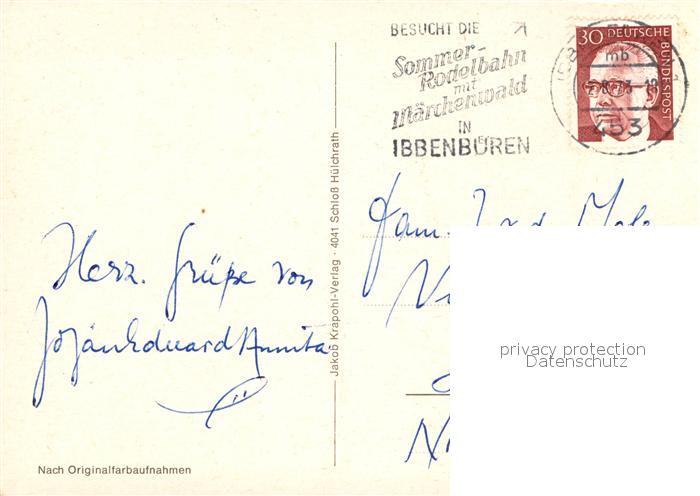 BESUCHT DIE
Sommer-
Rodelbahn
mit
Märchenwald
IN
IBBENBÜREN
30 DEUTSCHE
BUNDESPOST
mb
453
Herz. Grüße von
Eduard Annita
Fam.
Jakob Krapohl-Verlag · 4041 Schloß Hülchrath
privacy protection
Datenschutz
Nach Originalfarbaufnahmen